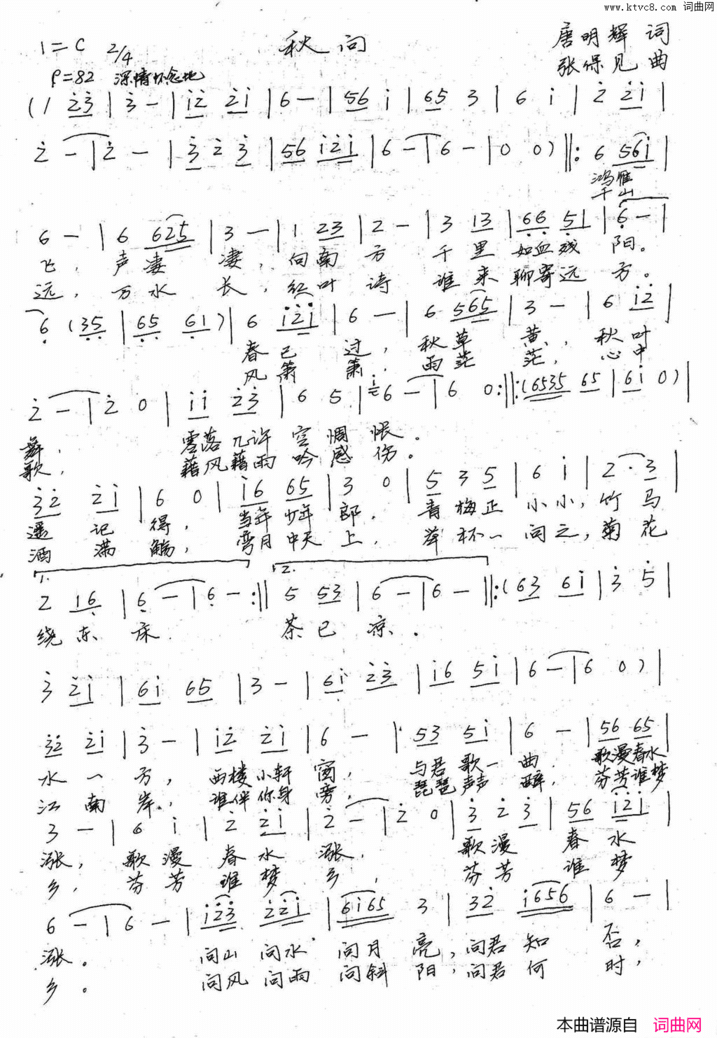 www.ktvc8.com 词曲网
1=C 2/4 秋问 唐明辉 词
♩=82 深情怀念地 张保见 曲
(1 23 | 3 - | 12 21 | 6 - | 56 1 | 65 3 | 6 1 | 2 21 |
2 - | 2 - | 3 2 3 | 56 121 | 6 - | 6 - | 0 0) ‖: 6 561 |
鸿雁
千山
6 - | 6 625 | 3 - | 1 23 | 2 - | 3 13 | 66 5 | 6 - |
飞，声凄 凄，向南方 千里如血残阳。
远，万水 长，红叶诗 谁来聊寄远方。
6 (35 | 65 61) | 6 121 | 6 - | 6 565 | 3 - | 6 12 |
春已 过，秋草 黄，秋叶
风萧 萧，雨茫 茫，心中
2 - | 2 0 | 11 23 | 6 5 | 6 - | 6 0 :‖: (6535 65 | 61 0) |
舞， 零落几许空惆怅。
歌， 藉风藉雨吟感伤。
32 21 | 6 0 | 16 65 | 3 0 | 5 3 5 | 6 1 | 2· 3 |
遥记得，当年少年郎，青梅正小小，竹马
酒满觞，弯月中天上，举杯一问之，菊花
1. 2.
2 16 | 6 - | 6 - :‖ 5 53 | 6 - | 6 - ‖: (63 61 | 3 5 |
绕东床 茶已凉。
3 21 | 61 65 | 3 - | 61 23 | 16 51 | 6 - | 6 0) |
32 21 | 3 - | 12 21 | 6 - | 53 51 | 6 - | 56 65 |
水一方，西楼小轩窗，与君歌一曲，歌漫春水
江南岸，谁伴你身旁，琵琶声声醉，芬芳谁梦
3 - | 6 1 | 2 21 | 2 - | 2 0 | 3 2 3 | 56 121 |
涨，歌漫春水涨，歌漫春水
乡，芬芳谁梦乡，芬芳谁梦
6 - | 6 - | 123 221 | 6165 3 | 32 1656 | 6 - |
涨。问山问水问月亮，问君知否，
乡。问风问雨问斜阳，问君何时，
本曲谱源自 词曲网